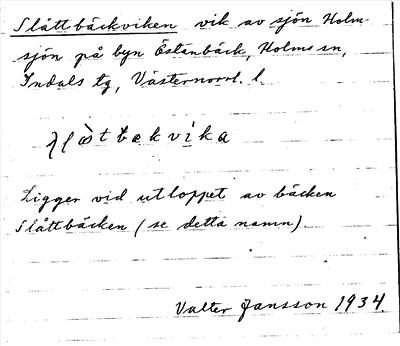 Slåttbäckviken vik av sjön Holm-
sjön på byn Östanbäck, Holms sn,
Indals tg, Västernorrl. l.
Ligger vid utloppet av bäcken
Slåttbäcken (se detta namn).
Valter Jansson 1934.